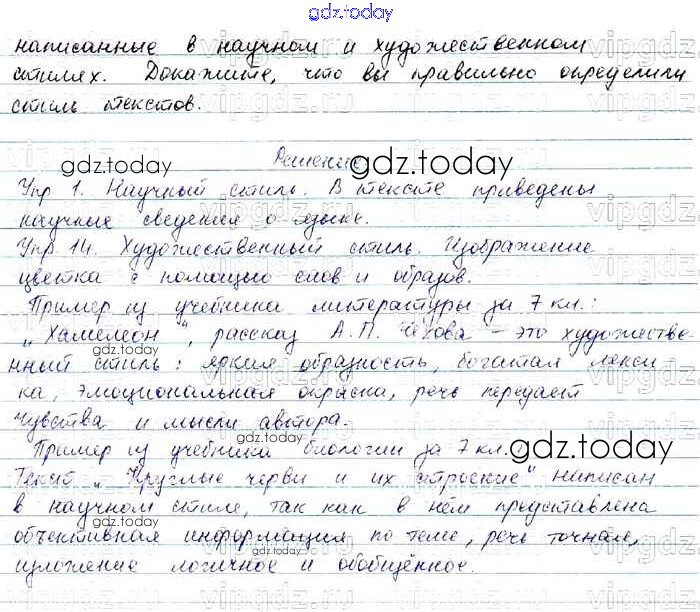 gdz.today
написанные в научном и художественном
стилях. Докажите, что вы правильно определили
стиль текстов.
Решение
gdz.today gdz.today
Упр 1. Научный стиль. В тексте приведены
научные сведения о языке.
Упр 14. Художественный стиль. Изображение
цветка с помощью слов и образов.
Пример из учебника литературы за 7 кл.:
„Хамелеон“, рассказ А.П. Чехова – это художестве-
gdz.today
нный стиль: яркая образность, богатая лекси
ка, эмоциональная окраска, речь передаёт
чувства и мысли автора.
gdz.today gdz.today
Пример из учебника биологии за 7 кл.
Текст „Круглые черви и их строение“ написан
в научном стиле, так как в нём представлена
gdz.today
объективная информация по теме, речь точная,
gdz.today
изложение логичное и обобщённое.